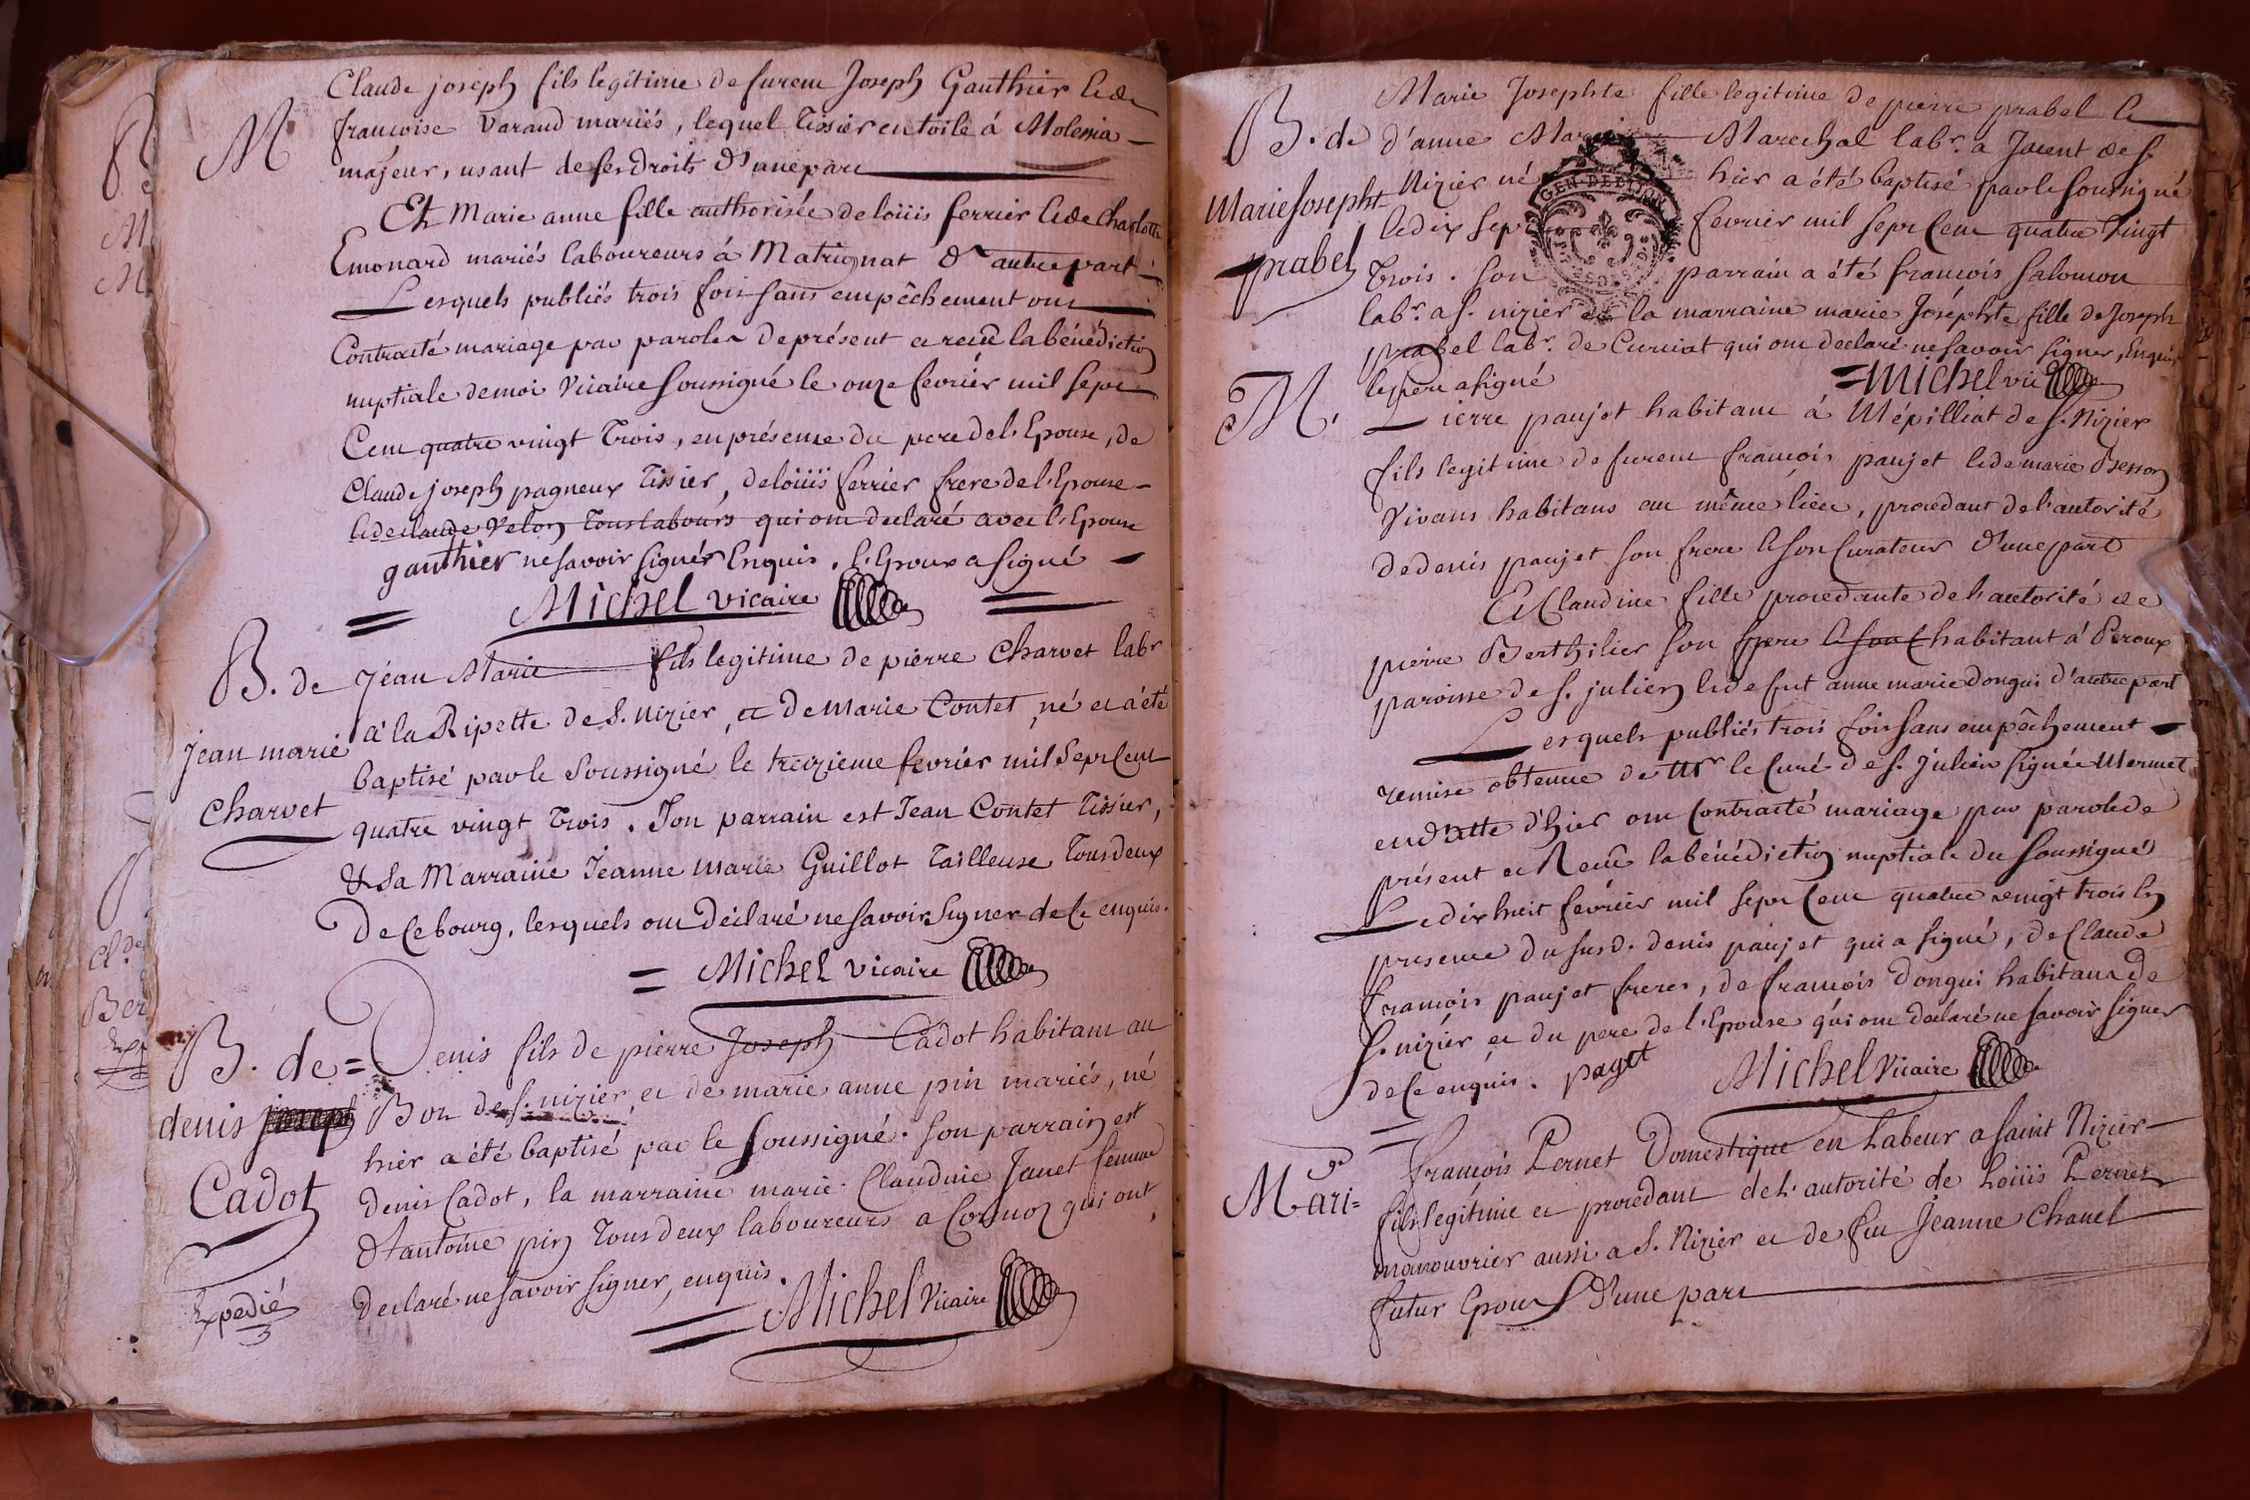 Claude joseph fils legitime de fureur Joseph Gauthier & de
M
francoise Varaud mariés, lequel Tissier en toile á Molesia
majeur, usant de ses droits d'une part
Et Marie anne fille authorisée de loüis ferrier & de Charlotte
Emonard mariés laboureurs á Matrignat d'autre part
Lesquels publiés trois fois sans empêchement ont
Contracté mariage par paroles de présent et recû la bénédiction
nuptiale de moi Vicaire soussigné le onze fevrier mil sept
Cent quatre vingt Trois, en présence du pere de l'Epouse, de
Claude joseph pagneux Tissier, de loüis ferrier frere de l'Epouse
& de claude Velon Tous labours qui ont declaré avec l'Epouse
gauthier ne savoir signér Enquis. L'Epoux a signé
Michel vicaire
B. de Jéan Marie fils legitime de pierre Charvet labr
Jean marie
à la Ripette de S. nizier, et de Marie Contet, né et a été
baptisé par le Soussigné le treizieme fevrier mil Sept Cent
Charvet
quatre vingt Trois. Son parrain est Jean Contet Tissier,
& Sa Marraine Jeanne Marie Guillot Tailleuse Tous deux
De Ce bourg, lesquels ont Déclaré ne savoir Signer de Ce enquis.
Michel vicaire
B. de = Denis fils de pierre Joseph Cadot habitant au
denis joseph
Bon de S. nizier, et de marie anne pin mariés, né
hier a été baptisé par le Soussigné. Son parrain est
Cadot
denis Cadot, la marraine marie Claudine Janet femme
d'antoine pin Tous deux laboureurs a Cornoz qui ont
Expedié
Declaré ne savoir signer, enquis.
Michel Vicaire
Marie Josephte fille legitime de pierre prabel &
B. de d'anne Marie Marechal labr. a Jacent de S.
Marie Josepht
Nizier né hier a été baptisé par le soussigné
le dix sept fevrier mil sept Cent quatre Vingt
GEN. DE
prabel
Trois. Son parrain a été francois Salomon
labr. a S. nizier et la marraine marie Joséphte fille de Joseph
prabel labr. de Curciat qui ont declaré ne savoir signer, Enquis,
le pere a signé
Michel vic
M.
Pierre paujet habitant á Mépilliat de S. Nizier
fils legitime de fureur francois paujet & de marie Besson
Vivans habitans au même lieu, procedant de l'autorité
de denis paujet son frere & son Curateur d'une part
Et Claudine fille procedante de l'autorité de
pierre Berthilier son pere & son C habitant á Peroux
paroisse de S. julien & de fut anne marie dongui d'autre part
Lesquels publiés trois fois sans empêchement
remise obtenue de Mr le Curé de S. Julien signée Mermet
en datte d'hier ont Contracté mariage par parole de
présent et Recû la bénédiction nuptiale du Soussigné
Le dix huit fevrier mil sept Cent quatre vingt trois En
presence du susd. denis paujet qui a signé, de Claude
francois paujet freres, de francois dongui habitans De
S. nizier et du pere de l'Epouse qui ont declaré ne savoir signer
de Ce enquis. paget
Michel Vicaire
Mari=
ge
francois Pernet Domestique en Labeur a Saint Nizier
fils legitime et procedant de L'autorité de Loüis Pernet
manouvrier aussi a S. Nizier et de feu Jeanne Chanel
futur Epoux d'une part